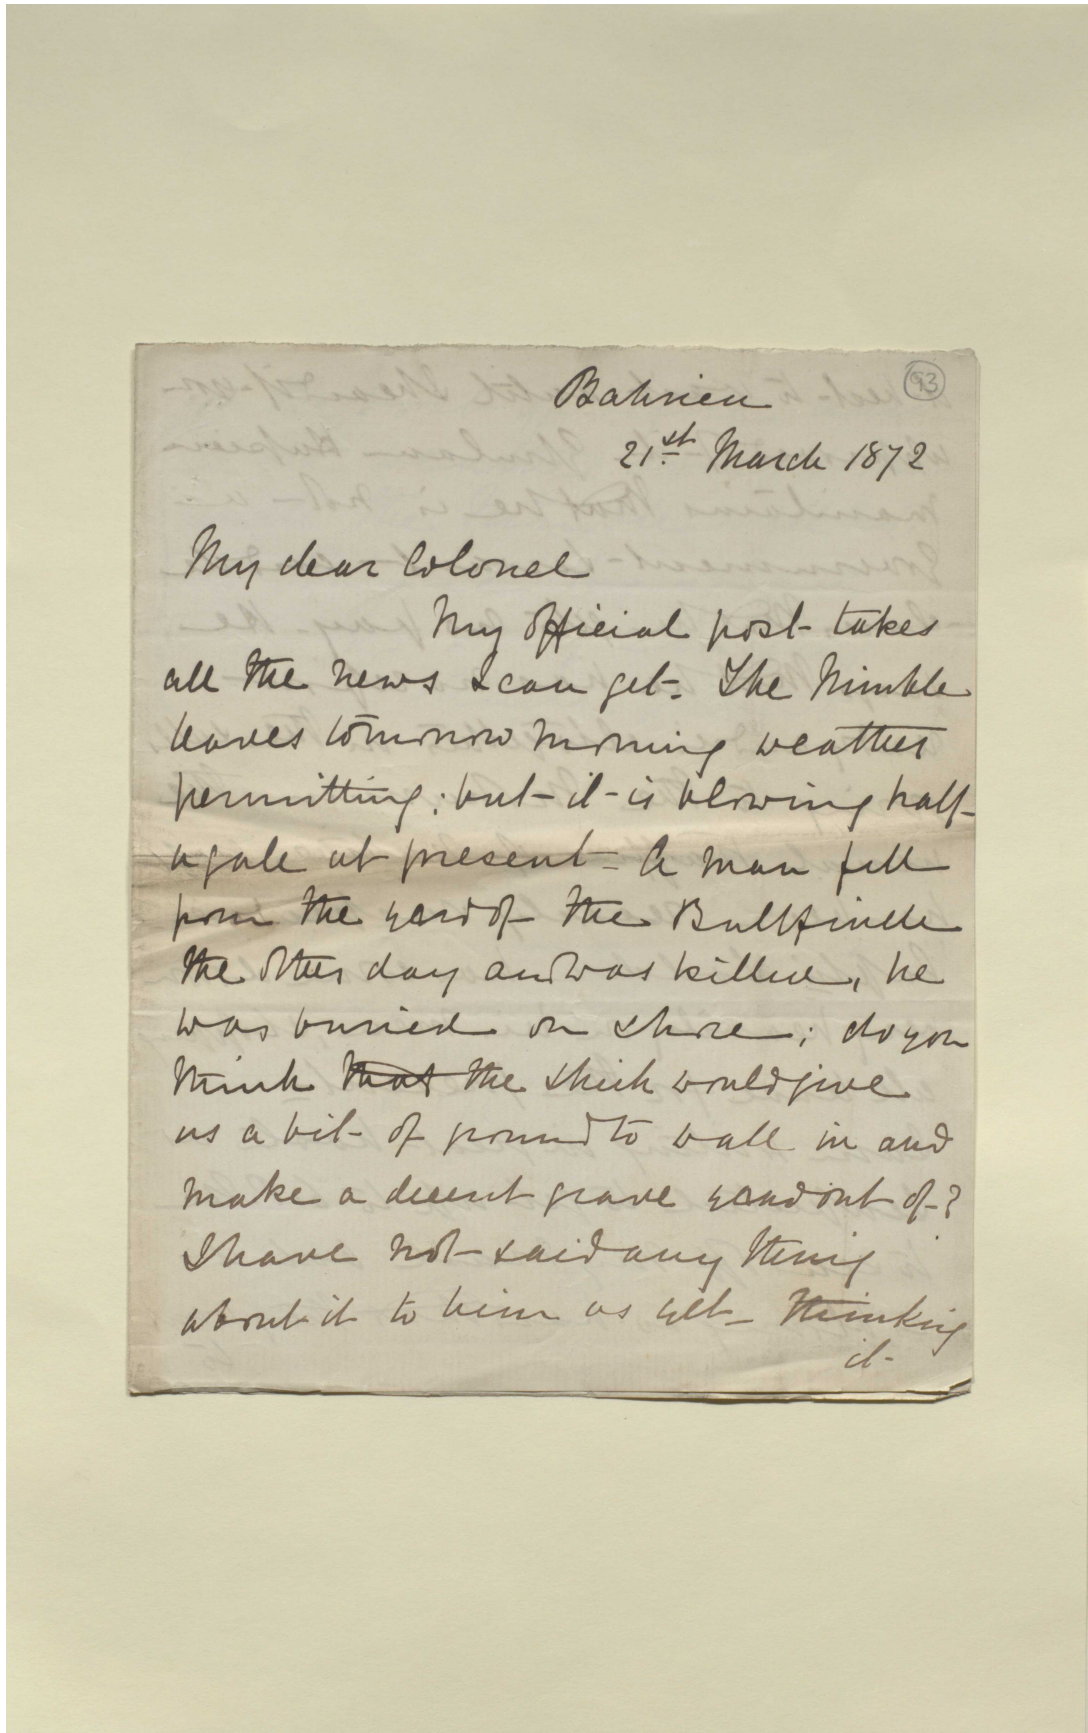 93
Bahrien
21st March 1872
My dear Colonel
My official post takes
all the news I can get. The Nimble
leaves tomorrow morning weather
permitting; but it is blowing half
a gale at present - A man fell
from the yard of the Bullfinch
the other day and was killed, he
was buried on shore; do you
think that the Sheik would give
us a bit of ground to wall in and
make a decent grave yard out of?
I have not said any thing
about it to him as yet - thinking
it